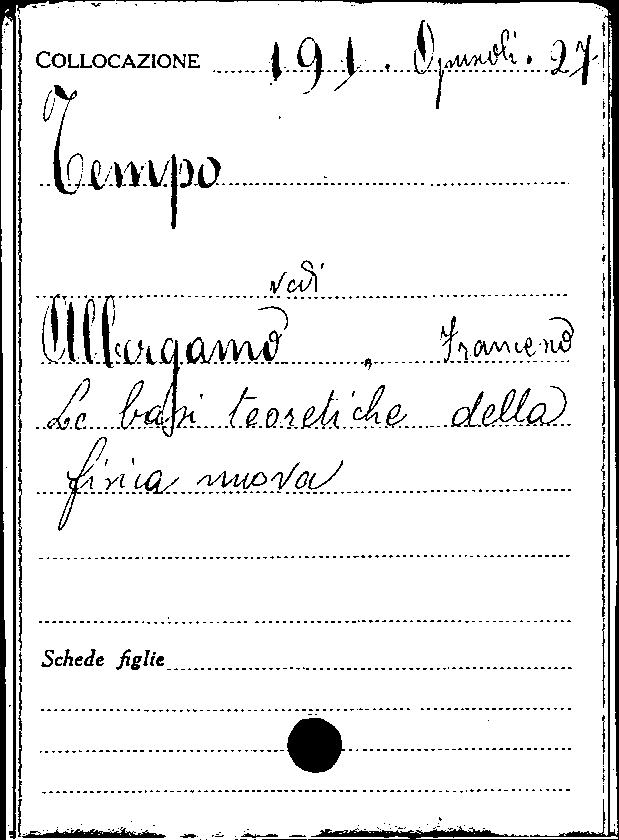 COLLOCAZIONE 191. Opuscoli. 27
Tempo
vedi
Albergamo, Francesco
Le basi teoretiche della
fisica nuova
Schede figlie